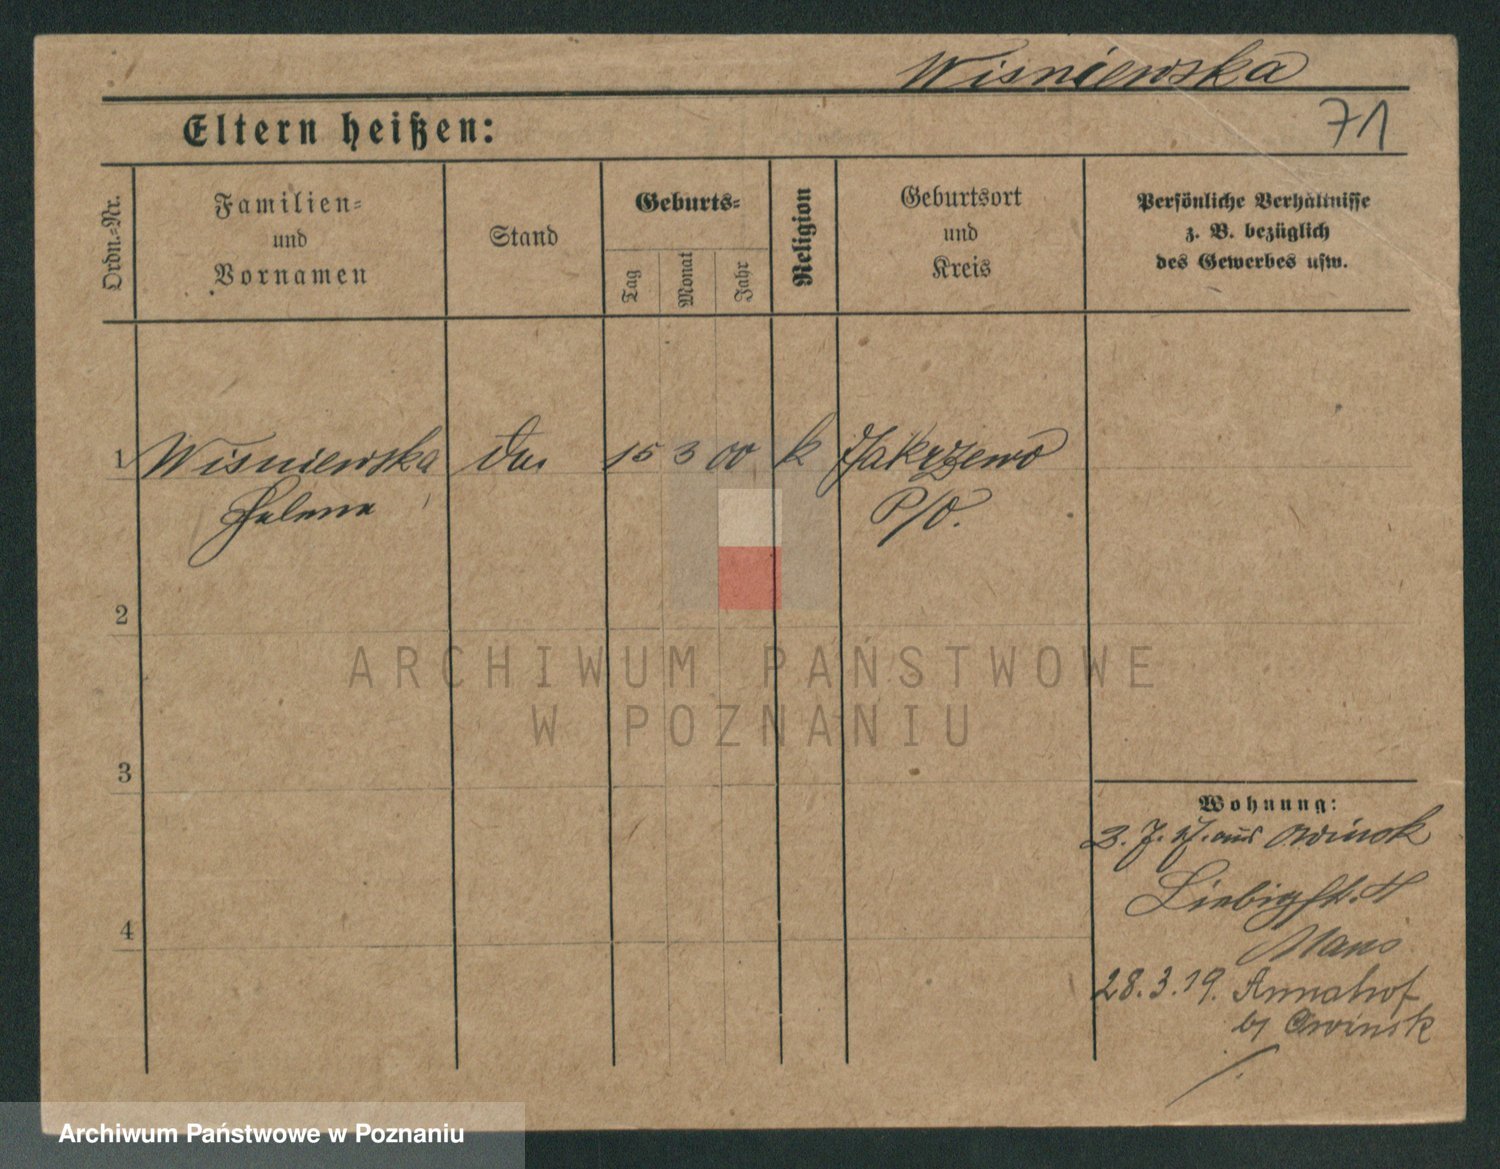 Wisniewska
71
Eltern heißen:
Ordn.-Nr.
Familien-
und
Vornamen
Stand
Geburts-
Tag
Monat
Jahr
Religion
Geburtsort
und
Kreis
Persönliche Verhältnisse
z. B. bezüglich
des Gewerbes usw.
1 Wisniewska 15 3 00 k Zakrzewo
Helene P/O.
2
ARCHIWUM PAŃSTWOWE
W POZNANIU
3
4
Wohnung:
aus Owinsk
Liebigstr.
28.3.19. Annahof
b/ Owinsk
Archiwum Państwowe w Poznaniu